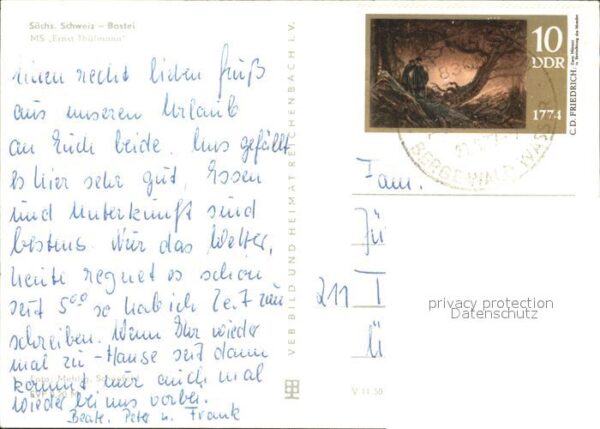 Sächs. Schweiz – Bastei
MS „Ernst Thälmann"
Einen recht lieben Gruß
aus unserem Urlaub
an Euch beide. Uns gefällt
es hier sehr gut, Essen
und Unterkunft sind
bestens. Nur das Wetter,
heute regnet es schon
seit 5⁰⁰ so hab ich Zeit zum
schreiben. Wenn Ihr wieder
mal zu-Hause seit dann
kommt mir auch mal
wieder bei uns vorbei.
Beate, Peter u. Frank
VEB BILD UND HEIMAT REICHENBACH I. V.
V 11 50
10
DDR
1774
C.D. FRIEDRICH, Zwei Männer in Betrachtung des Mondes
Fam.
Jü
211
privacy protection
Datenschutz